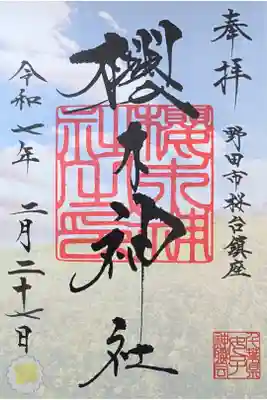 奉拝
野田市桜台鎮座
櫻木神社
櫻木神
社之印
令和七年
二月二十七日